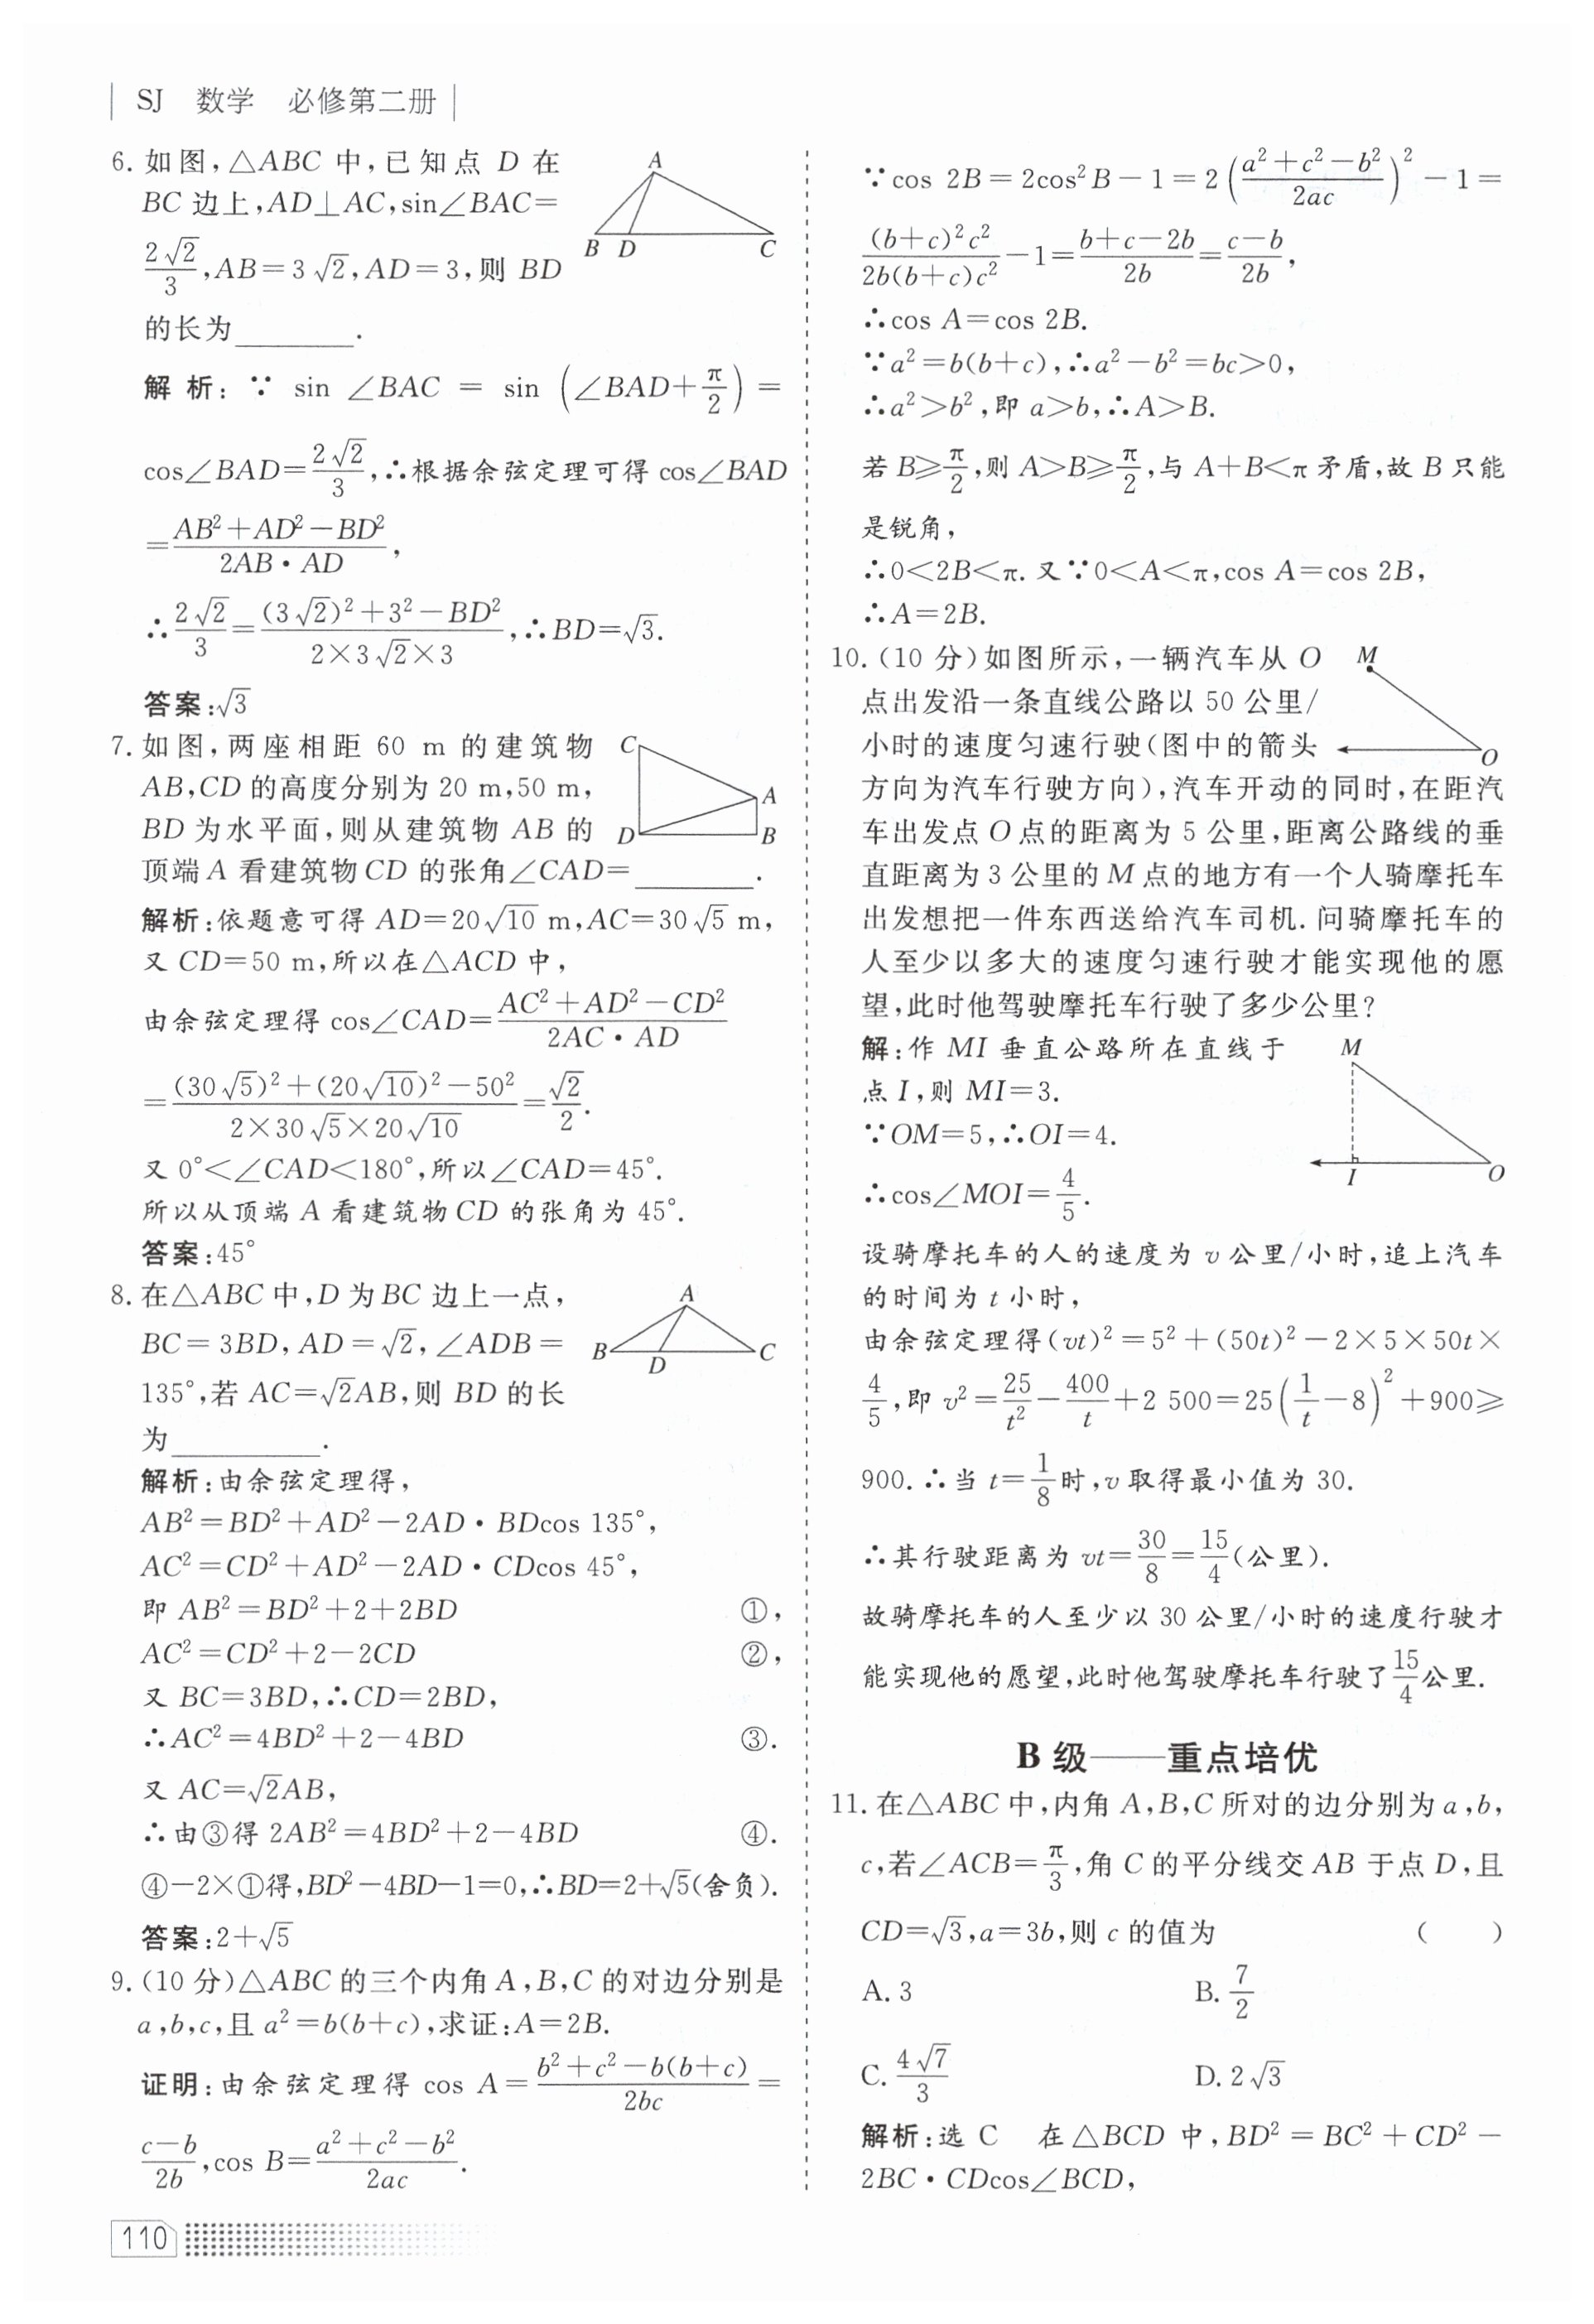 SJ 数学 必修第二册
6. 如图,△ABC 中,已知点 D 在
BC 边上,AD⊥AC,sin∠BAC=
2√2/3,AB=3√2,AD=3,则 BD
的长为________.
A
B D C
解析:∵ sin ∠BAC = sin (∠BAD+π/2) =
cos∠BAD=2√2/3,∴根据余弦定理可得 cos∠BAD
=(AB²+AD²−BD²)/(2AB·AD),
∴2√2/3=((3√2)²+3²−BD²)/(2×3√2×3),∴BD=√3.
答案:√3
7. 如图,两座相距 60 m 的建筑物
AB,CD 的高度分别为 20 m,50 m,
BD 为水平面,则从建筑物 AB 的
顶端 A 看建筑物 CD 的张角∠CAD=________.
C
A
D B
解析:依题意可得 AD=20√10 m,AC=30√5 m,
又 CD=50 m,所以在△ACD 中,
由余弦定理得 cos∠CAD=(AC²+AD²−CD²)/(2AC·AD)
=((30√5)²+(20√10)²−50²)/(2×30√5×20√10)=√2/2.
又 0°<∠CAD<180°,所以∠CAD=45°.
所以从顶端 A 看建筑物 CD 的张角为 45°.
答案:45°
8. 在△ABC 中,D 为 BC 边上一点,
BC=3BD,AD=√2,∠ADB=
135°,若 AC=√2AB,则 BD 的长
为__________.
A
B D C
解析:由余弦定理得,
AB²=BD²+AD²−2AD·BDcos 135°,
AC²=CD²+AD²−2AD·CDcos 45°,
即 AB²=BD²+2+2BD ①,
AC²=CD²+2−2CD ②,
又 BC=3BD,∴CD=2BD,
∴AC²=4BD²+2−4BD ③.
又 AC=√2AB,
∴由③得 2AB²=4BD²+2−4BD ④.
④−2×①得,BD²−4BD−1=0,∴BD=2+√5(舍负).
答案:2+√5
9. (10 分)△ABC 的三个内角 A,B,C 的对边分别是
a,b,c,且 a²=b(b+c),求证:A=2B.
证明:由余弦定理得 cos A=(b²+c²−b(b+c))/(2bc)=
(c−b)/(2b),cos B=(a²+c²−b²)/(2ac).
110
∵cos 2B=2cos²B−1=2((a²+c²−b²)/(2ac))²−1=
((b+c)²c²)/(2b(b+c)c²)−1=(b+c−2b)/(2b)=(c−b)/(2b),
∴cos A=cos 2B.
∵a²=b(b+c),∴a²−b²=bc>0,
∴a²>b²,即 a>b,∴A>B.
若 B⩾π/2,则 A>B⩾π/2,与 A+B<π 矛盾,故 B 只能
是锐角,
∴0<2B<π. 又∵0<A<π,cos A=cos 2B,
∴A=2B.
10. (10 分)如图所示,一辆汽车从 O
点出发沿一条直线公路以 50 公里/
小时的速度匀速行驶(图中的箭头
方向为汽车行驶方向),汽车开动的同时,在距汽
车出发点 O 点的距离为 5 公里,距离公路线的垂
直距离为 3 公里的 M 点的地方有一个人骑摩托车
出发想把一件东西送给汽车司机. 问骑摩托车的
人至少以多大的速度匀速行驶才能实现他的愿
望,此时他驾驶摩托车行驶了多少公里?
M
O
解:作 MI 垂直公路所在直线于
点 I,则 MI=3.
∵OM=5,∴OI=4.
∴cos∠MOI=4/5.
M
I O
设骑摩托车的人的速度为 v 公里/小时,追上汽车
的时间为 t 小时,
由余弦定理得(vt)²=5²+(50t)²−2×5×50t×
4/5,即 v²=25/t²−400/t+2 500=25(1/t−8)²+900⩾
900. ∴当 t=1/8时,v 取得最小值为 30.
∴其行驶距离为 vt=30/8=15/4(公里).
故骑摩托车的人至少以 30 公里/小时的速度行驶才
能实现他的愿望,此时他驾驶摩托车行驶了15/4公里.
B 级——重点培优
11. 在△ABC 中,内角 A,B,C 所对的边分别为 a,b,
c,若∠ACB=π/3,角 C 的平分线交 AB 于点 D,且
CD=√3,a=3b,则 c 的值为 ( )
A. 3 B. 7/2
C. 4√7/3 D. 2√3
解析:选 C 在△BCD 中,BD²=BC²+CD²−
2BC·CDcos∠BCD,